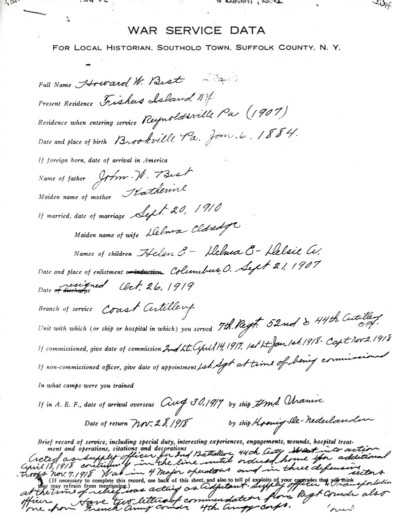 WAR SERVICE DATA
FOR LOCAL HISTORIAN, SOUTHOLD TOWN, SUFFOLK COUNTY, N. Y.
Full Name Howard W. Best
Present Residence Fishers Island NY
Residence when entering service Reynoldsville Pa (1907)
Date and place of birth Brookville Pa. Jan. 6. 1884.
If foreign born, date of arrival in America
Name of father John W. Best
Maiden name of mother Katherine
If married, date of marriage Sept 20, 1910
Maiden name of wife
Names of children Helen E- Delma E- Delsie A.
Date and place of enlistment or induction Columbus, O. Sept 21, 1907
resigned
Date of discharge Oct. 26, 1919
Branch of service Coast Artillery
Unit with which (or ship or hospital in which) you served 7th Regt 52nd & 44th Artillery
If commissioned, give date of commission 2nd Lt. April 14, 1917, 1st Lt Jan 1st 1918 - Capt Nov 2 1918
If non-commissioned officer, give date of appointment 1st Sgt at time of being commissioned
In what camps were you trained
If in A. E. F., date of arrival overseas Aug 30, 1917 by ship
Date of return Nov. 28, 1918 by ship
Brief record of service, including special duty, interesting experiences, engagements, wounds, hospital treatment and operations, citations and decorations
Acted as supply officer for 2nd Battalion 44th Arty. went into action
April 18, 1918 continuing in the line until ordered home for additional
troops Nov. 7, 1918 Was in 4 major operations and in three defensive sectors
(If necessary to complete this record, use back of this sheet, and also to tell of exploits of your comrades that you think they may refrain from mentioning.)
at the time of relief was acting as Adjutant, supply officer & transportation
officer. Have two letters of commendation from Regt Comdr also
one from French Army comdr 4th Army corps.